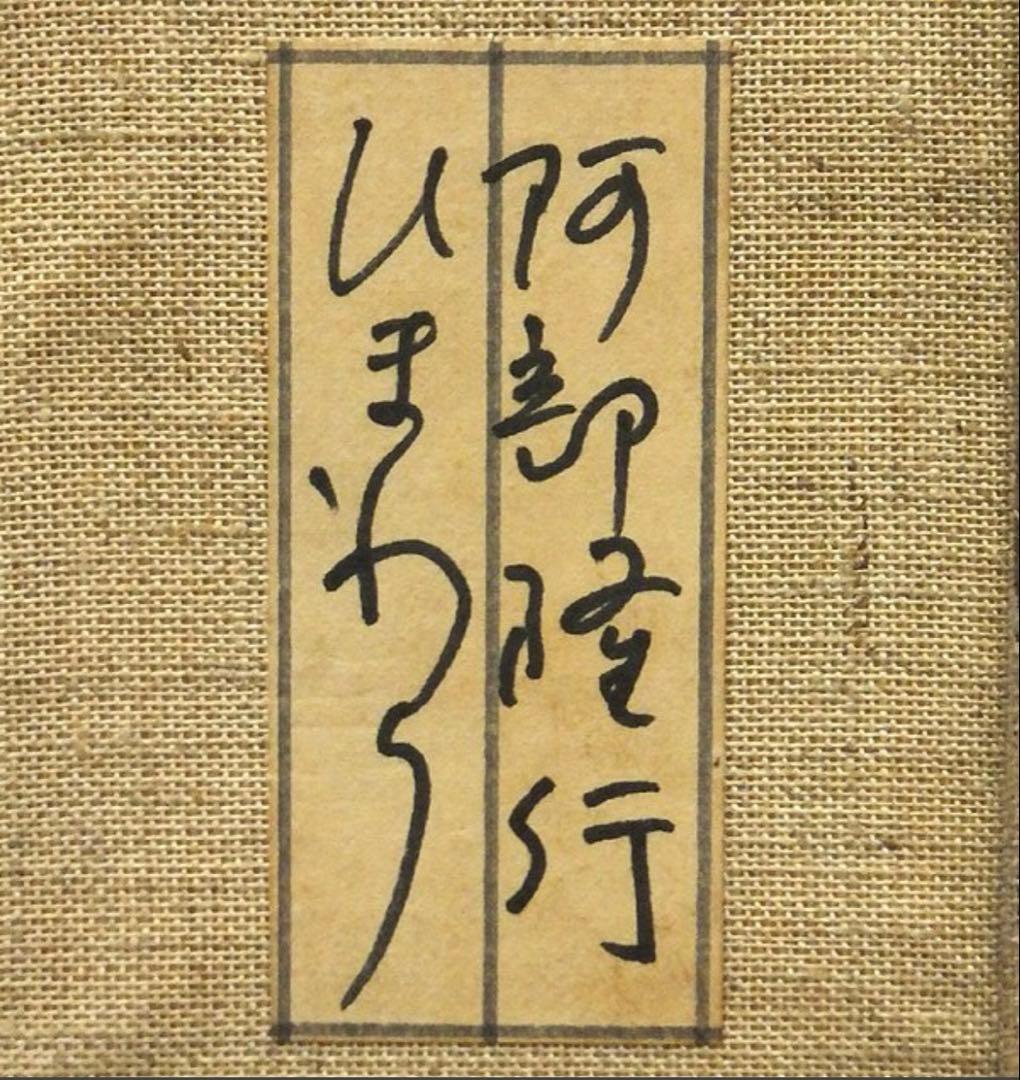 阿部隆行
ひまわり